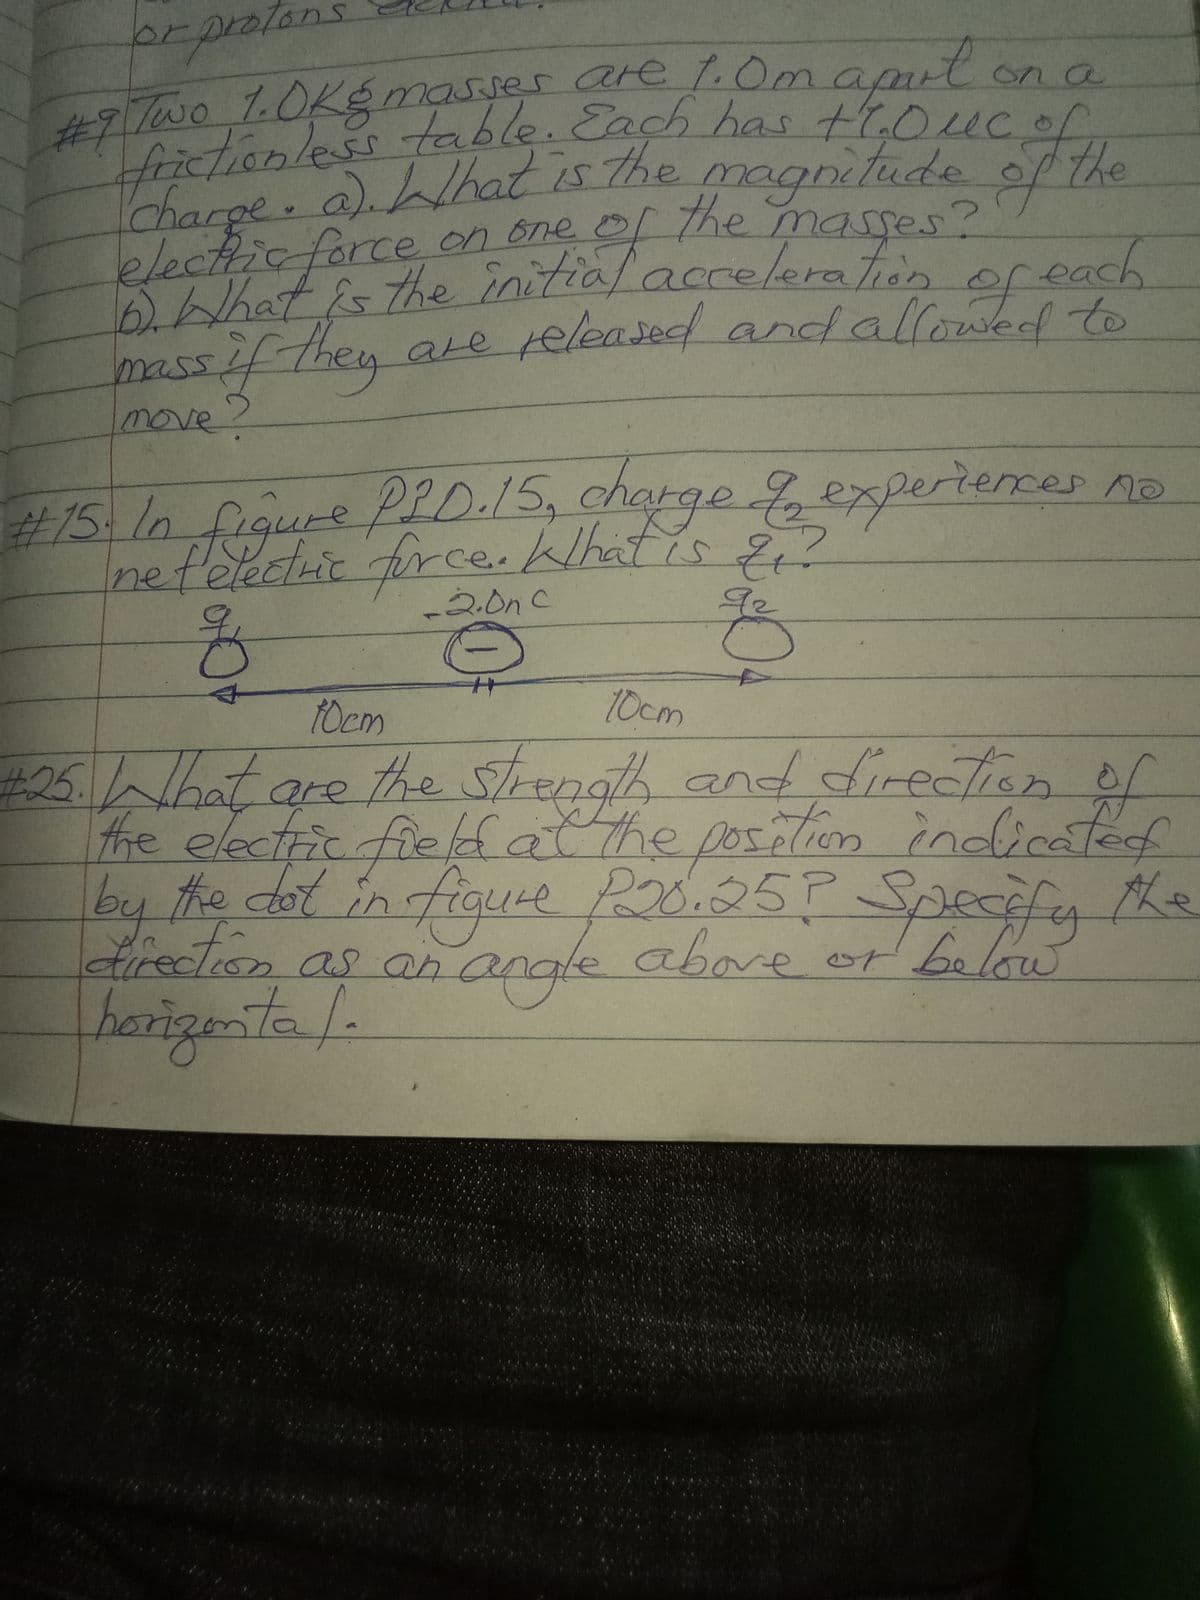 or protons
#9 Two 1.0Kg masses are 1.0m apart on a
frictionless table. Each has +1.0uc of
charge. a). What is the magnitude of the
electric force on one of the masses?
b). What is the initial acceleration of each
mass if they are released and allowed to
move?
#15. In figure P20.15, charge q2 experiences no
net electric force. What is q1?
q1 -2.0nC q2
-
10cm 10cm
#25. What are the strength and direction of
the electric field at the position indicated
by the dot in figure P20.25? Specify the
direction as an angle above or below
horizontal.